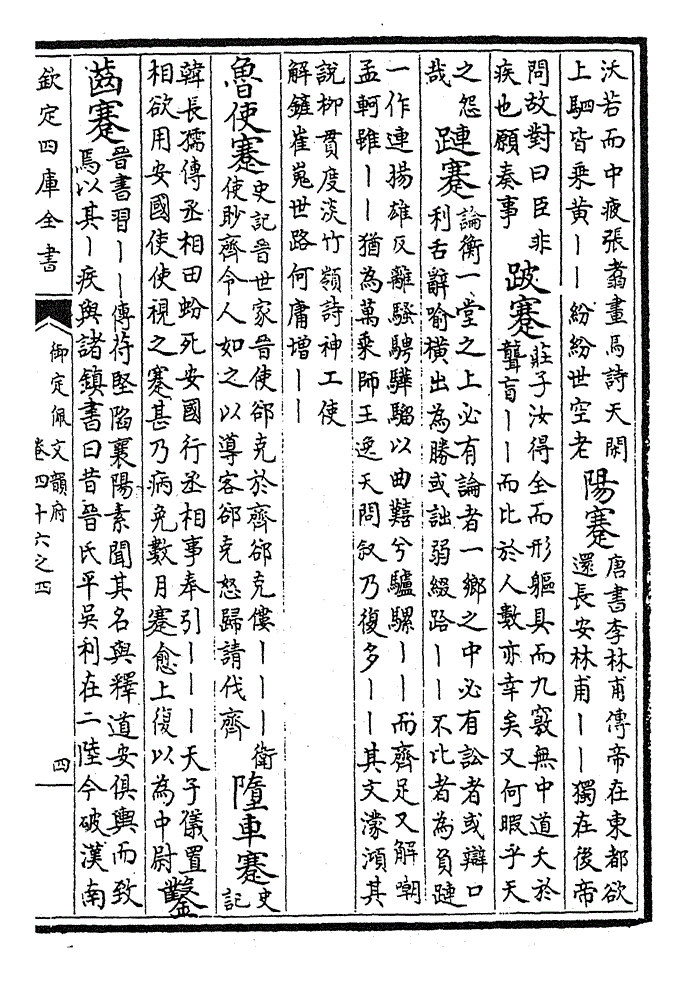 沃若而中疲張翥畫馬詩天閑
上駟皆乘黃||紛紛世空老
陽蹇
唐書李林甫傳帝在東都欲
還長安林甫||獨在後帝
問故對曰臣非
疾也願奏事
跛蹇
莊子汝得全而形軀具而九竅無中道夭於
聾盲||而比於人數亦幸矣又何暇乎天
之怨
哉
蹥蹇
論衡一堂之上必有論者一鄉之中必有訟者或辯口
利舌辭喻橫出為勝或詘弱綴路||不比者為負蹥
一作連揚雄反離騷騁驊騮以曲囏兮驢騾||而齊足又解嘲
孟軻雖||猶為萬乘師王逸天問叙乃復多||其文濛澒其
說柳貫度淡竹嶺詩神工使
解鏟崔嵬世路何庸增||
魯使蹇
史記晉世家晉使郤克於齊郤克僂|||衛
使眇齊令人如之以導客郤克怒歸請伐齊
墮車蹇
史
記
韓長孺傳丞相田蚡死安國行丞相事奉引|||天子儀置
相欲用安國使使視之蹇甚乃病免數月蹇愈上復以為中尉
鑿
齒蹇
晉書習||傳苻堅陷襄陽素聞其名與釋道安俱輿而致
焉以其|疾與諸鎮書曰昔晉氏平吳利在二陸今破漢南
欽定四庫全書
御定佩文韻府
卷四十六之四
四